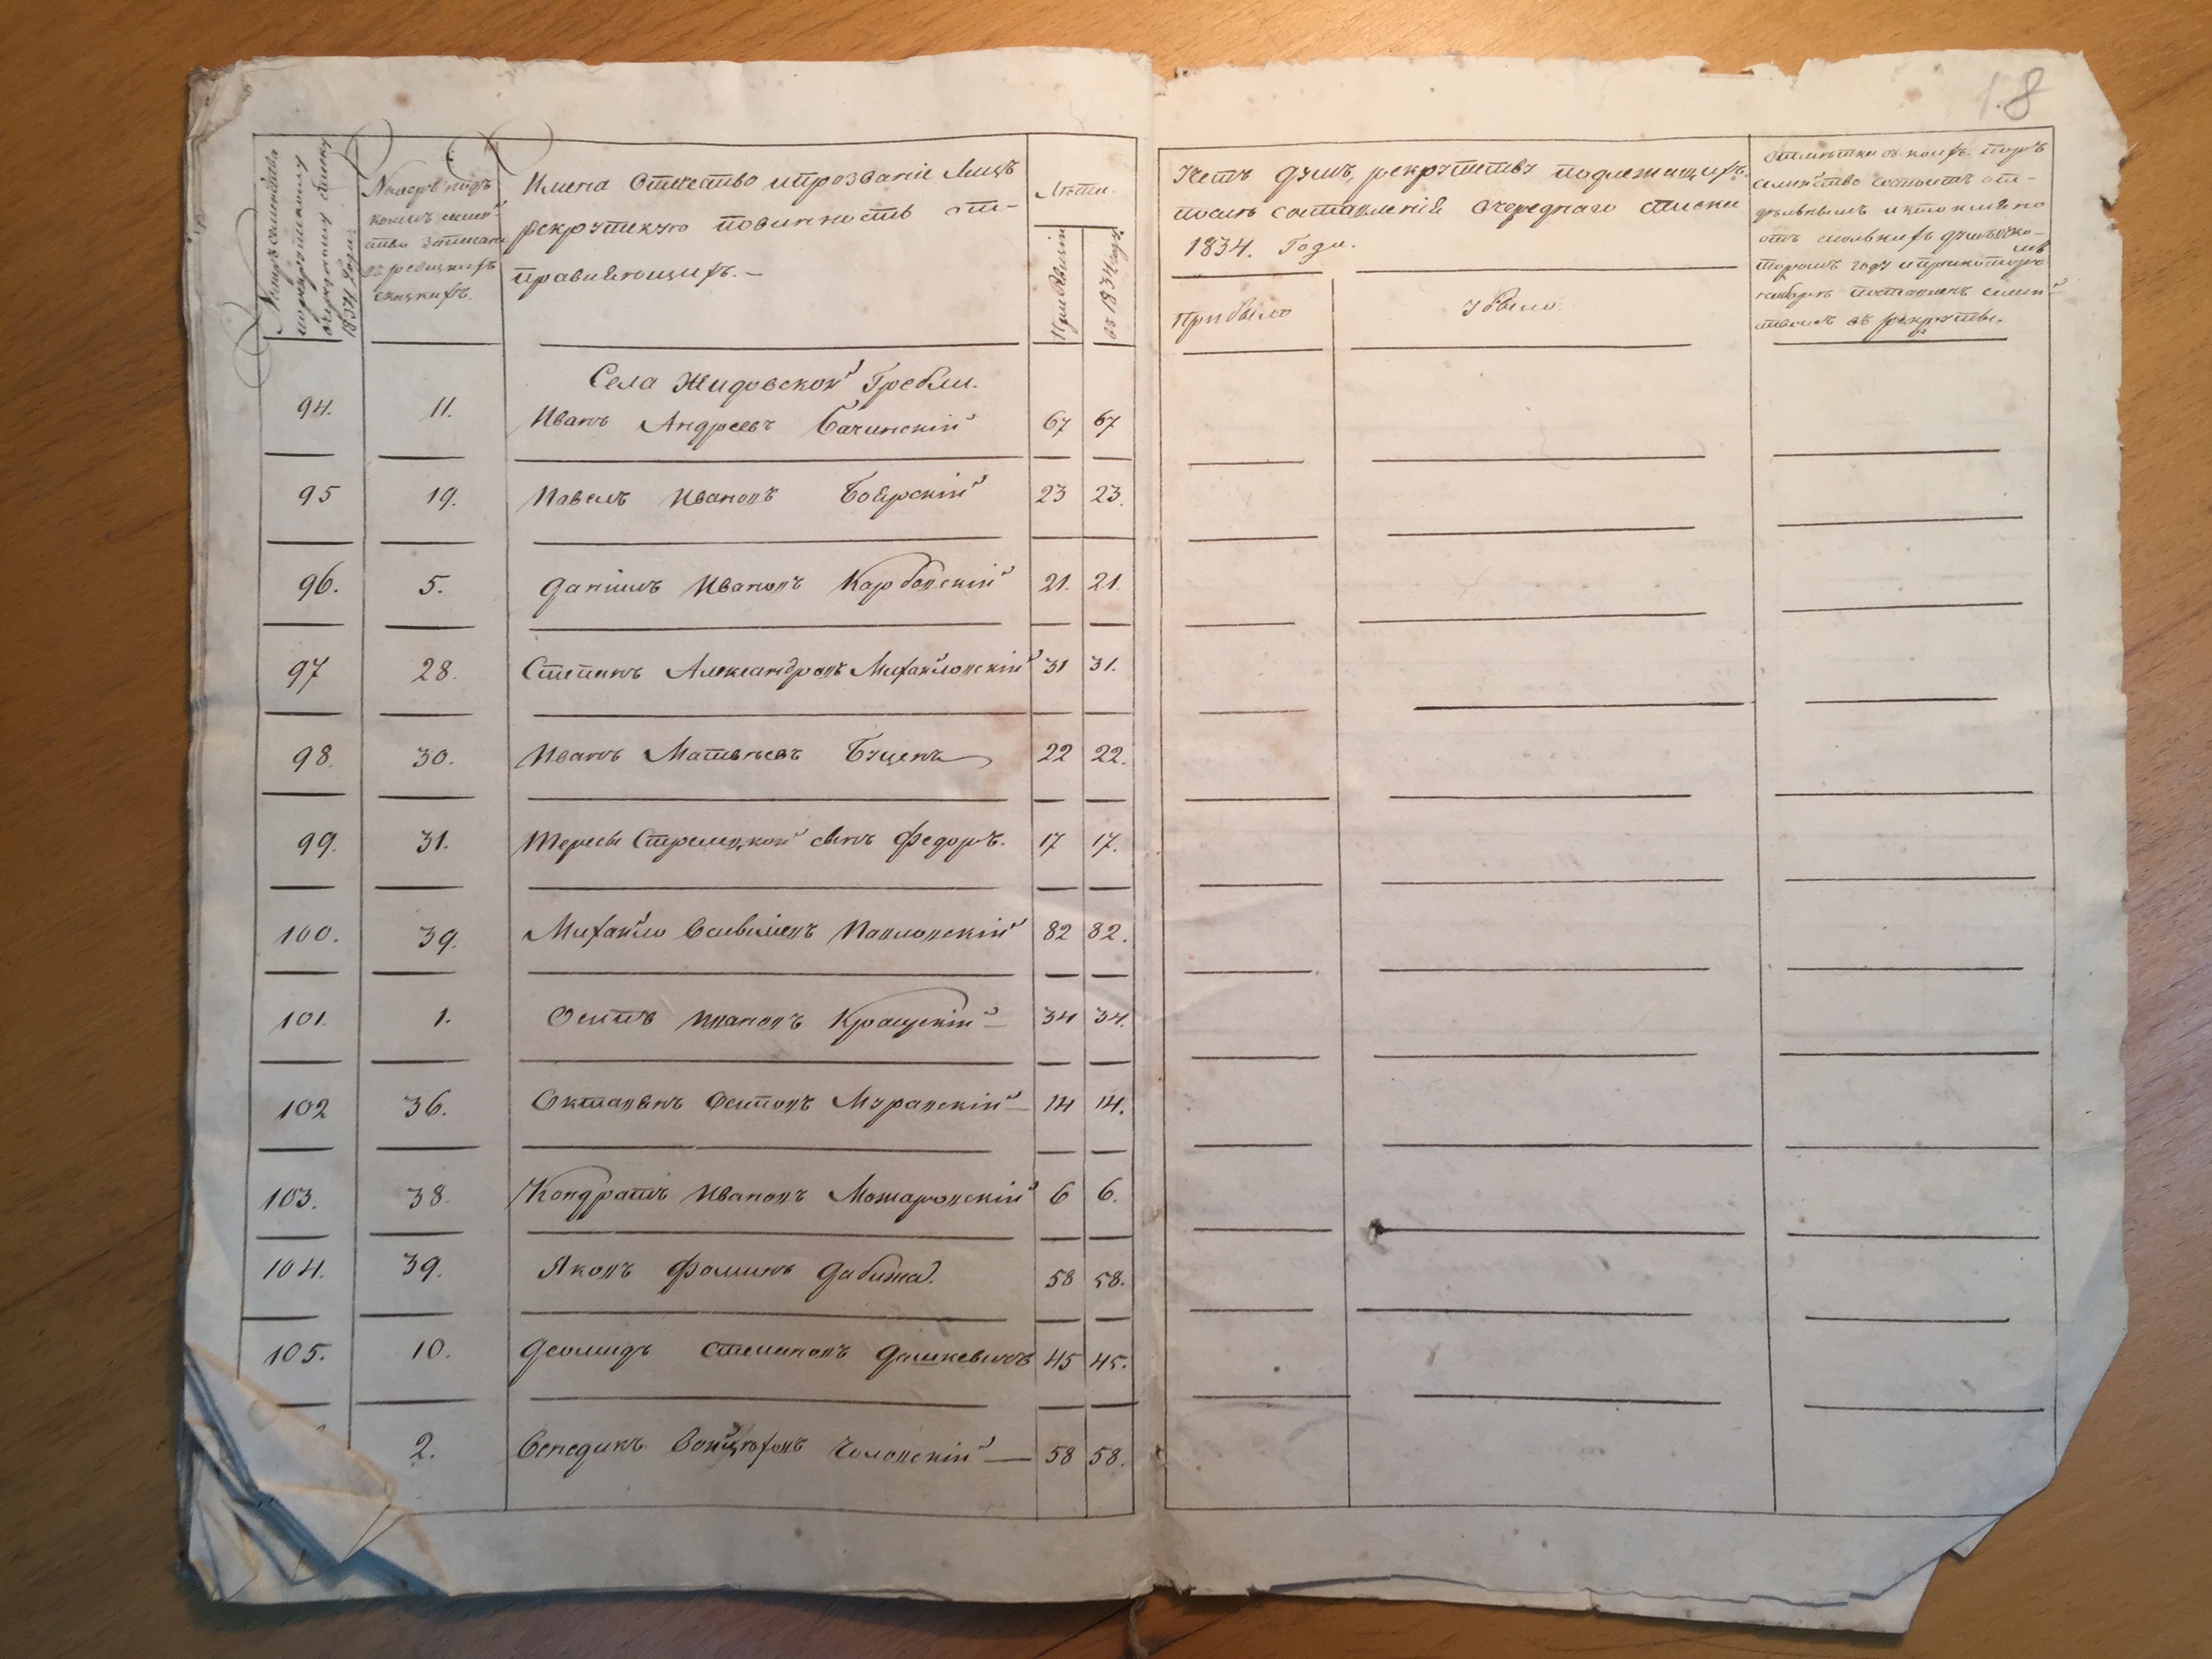 18
Номеръ семейства
по предъидущему
очередному списку
1834 года
Номеръ подъ
коимъ семей-
ство записано
въ ревизкихъ
сказкахъ.
Имена Отчество и прозваніе Лицъ
рекрутскую повинность от-
правляющихъ. —
Лѣта.
При Ревизіи
въ 1834 году
Учетъ душъ, рекрутству подлежащихъ
послѣ составленія очереднаго списка
1834. Года.
Прибыло
Убыло.
Отмѣтка съ коихъ поръ
семейство состоитъ от-
дѣльнымъ и кто именно
отъ сколькихъ душъ въ ко-
торомъ году и при которомъ
наборѣ поставленъ семей-
ствомъ въ рекруты.
Села Жидовской Гребли.
94. 11. Иванъ Андреевъ Бачинскій 67 67
95 19. Павелъ Ивановъ Боярскій 23 23.
96. 5. Даніилъ Ивановъ Карбовскій 21. 21.
97 28. Степанъ Александровъ Михайловскій 31 31.
98. 30. Иванъ Матвѣевъ Буценъ 22 22.
99. 31. Тересы Стрелецкой сынъ Федоръ. 17 17.
100. 39. Михайло Васильевъ Павловскій 82 82.
101. 1. Осипъ Ивановъ Кращскій 34 34.
102 36. Октавянъ Осиповъ Муравскій 14 14.
103. 38. Кондратъ Ивановъ Можаровскій 6 6.
104. 39. Яковъ Фоминъ Дабижа. 58 58.
105. 10. Деомидъ Степановъ Дашкевичъ 45 45.
2. Венедикъ Войцѣховъ Чоловскій 58 58.